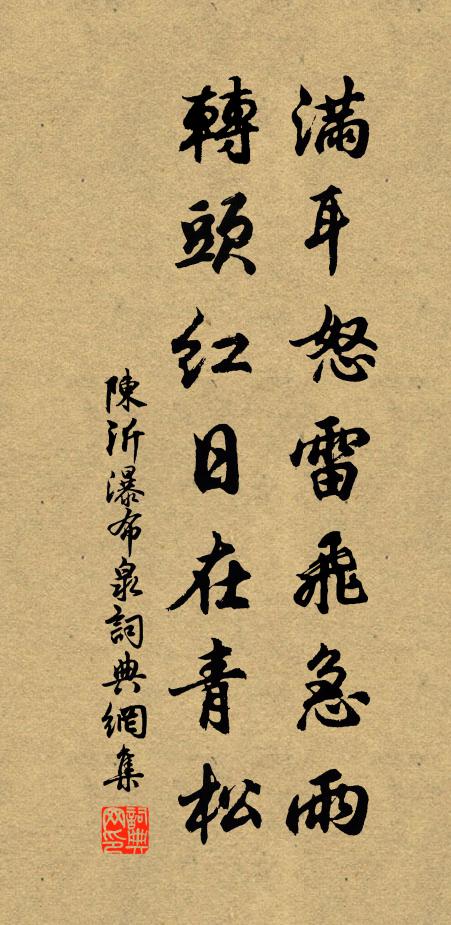 滿耳怒雷飛急雨
轉頭紅日在青松
陳沂瀑布泉詞典網集
詞典網印